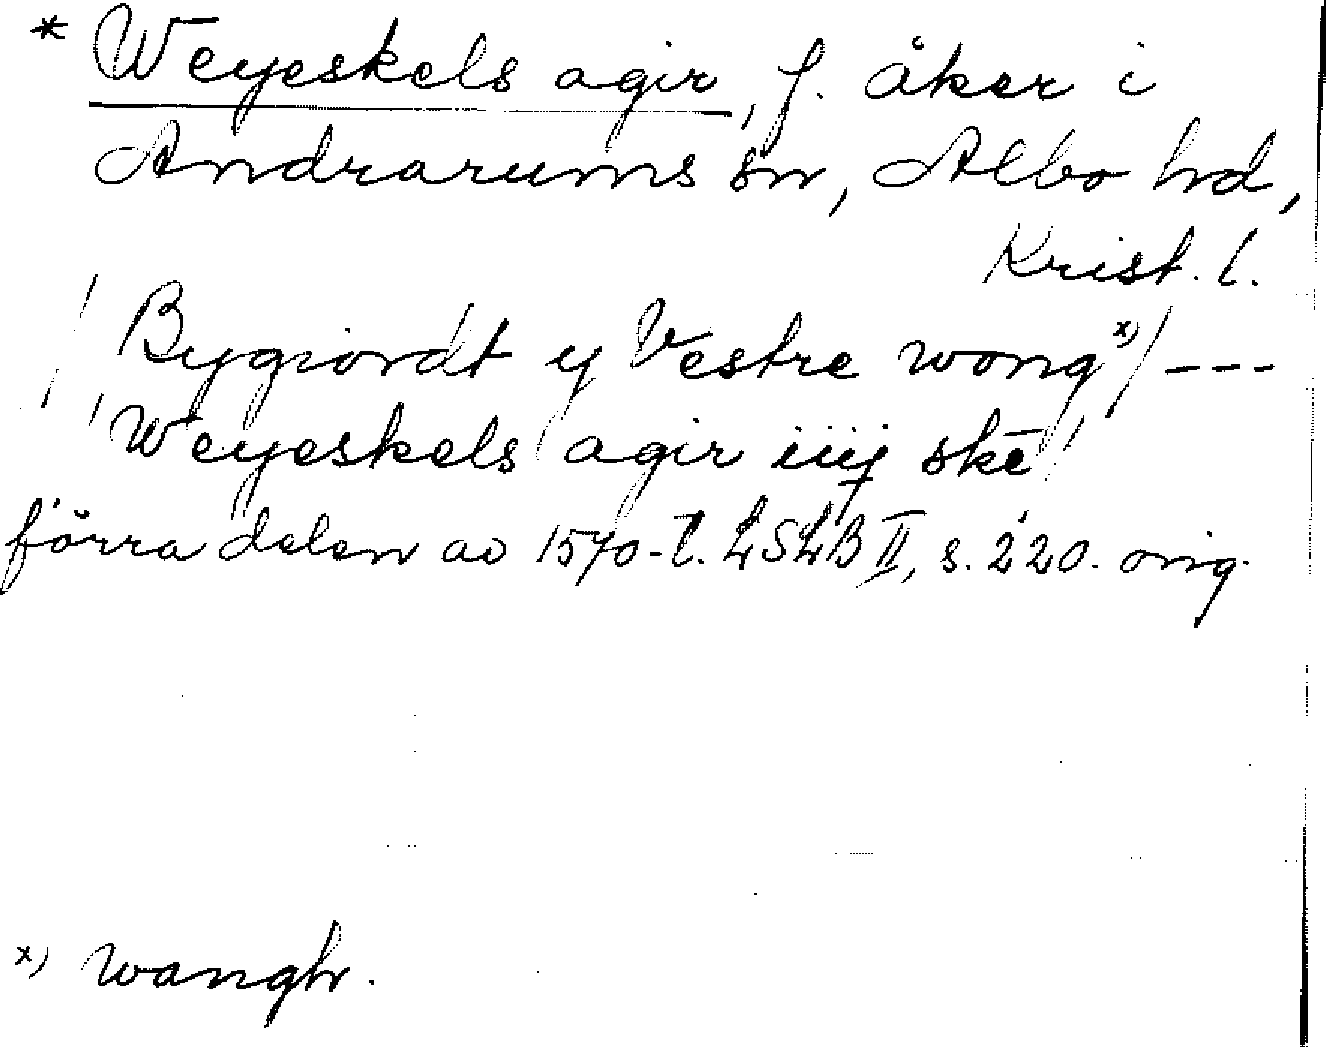 * Weyeskels agir, f. åker i
Andrarums sn, Albo hd,
Krist. l.
/ Bygiordt y Vestre wong x) / ---
/ Weyeskels agir iiij skē /
förra delen av 1570-t. LSLB II, s. 220. orig.
x) wangh.